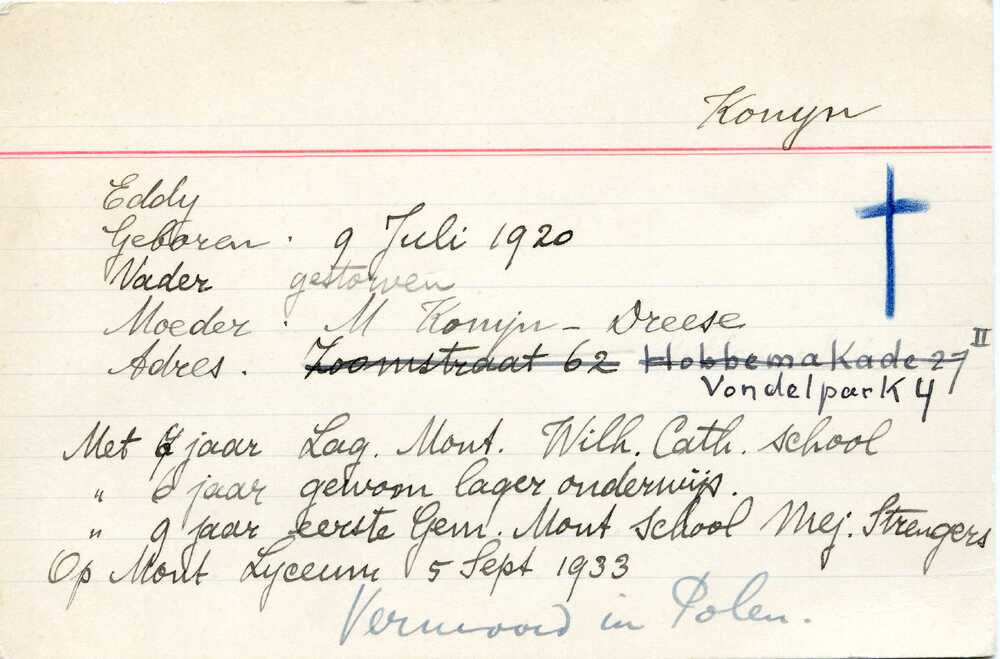 Konijn
Eddy
Geboren. 9 Juli 1920
Vader gestorven
Moeder. M Konijn - Dreese
Adres. Zoomstraat 62 Hobbemakade 27 II
Vondelpark 4
Met jaar Lag. Mont. Wilh. Cath. school
" 6 jaar gewoon lager onderwijs.
" 9 jaar eerste Gem. Mont school Mej. Strengers
Op Mont Lyceum 5 Sept 1933
Vermoord in Polen.